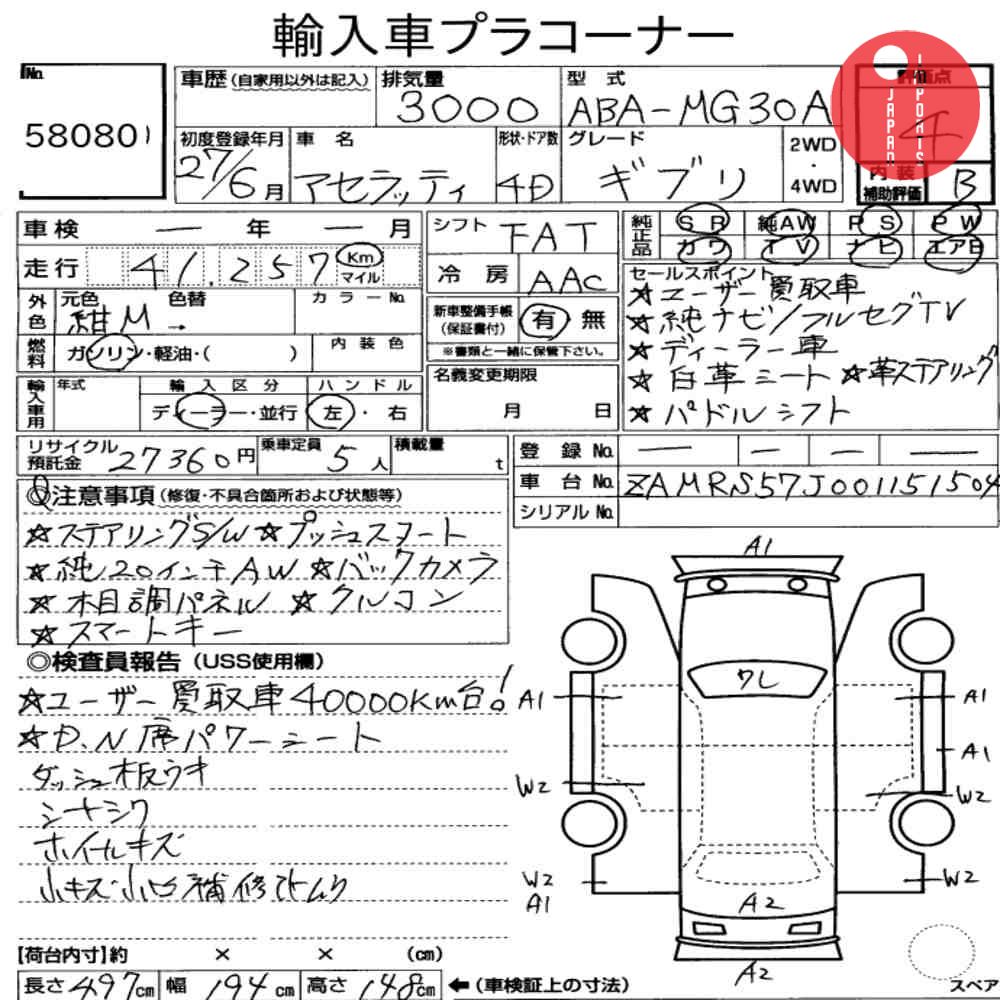 輸入車プラコーナー
No. 58080
車歴(自家用以外は記入) 排気量 3000 型式 ABA-MG30A
評価点 4
JAPAN IMPORTS
初度登録年月 27/6月 車名 マセラッティ 形状・ドア数 4D グレード ギブリ 2WD・4WD
内装補助評価 B
車検 ー 年 ー 月
シフト FAT
純正品 SR 純AW PS PW
カワ TV ナビ エアB
走行 41,257 Km マイル
冷房 AAC
外色 元色 紺M 色替 → カラーNo.
新車整備手帳(保証書付) 有 無
※書類と一緒に保管下さい。
燃料 ガソリン・軽油・( ) 内装色
輸入車用 年式 輸入区分 ハンドル
ディーラー・並行 左・右
名義変更期限
月 日
セールスポイント
☆ユーザー買取車
☆純ナビ/フルセグTV
☆ディーラー車
☆白革シート ☆革ステアリング
☆パドルシフト
リサイクル預託金 27360円 乗車定員 5人 積載量 t
登録No. ー ー ー ー
車台No. ZAMRS57J001151504
シリアルNo.
◎注意事項(修復・不具合箇所および状態等)
☆ステアリングS/W ☆プッシュスタート
☆純20インチAW ☆バックカメラ
☆木目調パネル ☆クルコン
☆スマートキー
◎検査員報告(USS使用欄)
☆ユーザー買取車40000Km台!
☆D.N席パワーシート
ダッシュ板ウキ
シートシワ
ホイールキズ
小キズ小凹補修
A1
ワレ
A1 A1
A1
W2 W2
W2 W2
A1
A2
A2
【荷台内寸】約 × × (cm)
長さ 497cm 幅 194cm 高さ 148cm ←(車検証上の寸法)
スペア